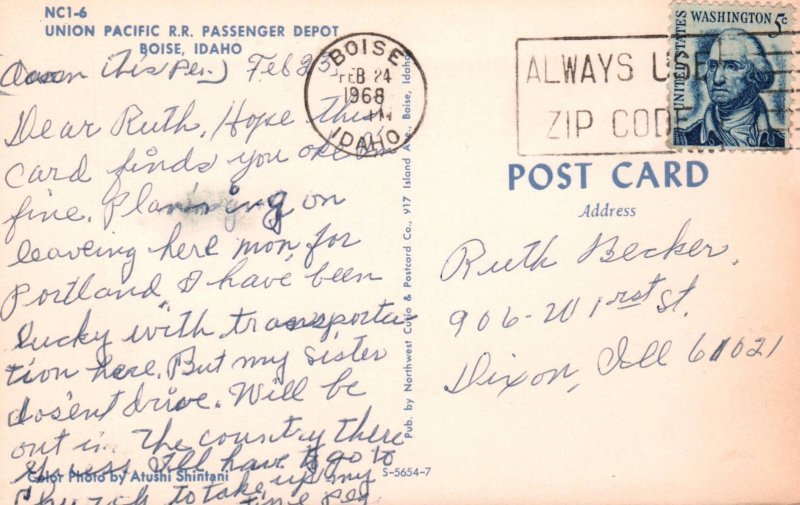 NC1-6
UNION PACIFIC R.R. PASSENGER DEPOT
BOISE, IDAHO
this pen) Feb 23,
Dear Ruth, Hope this
card finds you
fine. Planning on
leaveing here mon, for
Portland, I have been
lucky with transporta-
tion here. But my sister
dos'ent drive. Will be
out in the country there
Guess I'll have to go to
Church to take up my
time
Color Photo by Atushi Shintani
S-5654-7
Pub. by Northwest Curio & Postcard Co., 917 Island Ave., Boise, Idaho
BOISE
FEB 24
1968
IDAHO
ALWAYS USE
ZIP CODE
UNITED STATES
WASHINGTON 5c
POST CARD
Address
Ruth Becker.
906-W 1rst St.
Dixon, Ill 61021